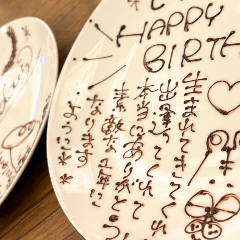 HAPPY
BIRTH
生まれてきて
出会ってくれて
本当にありがとう
素敵な1年に
なります
ように**